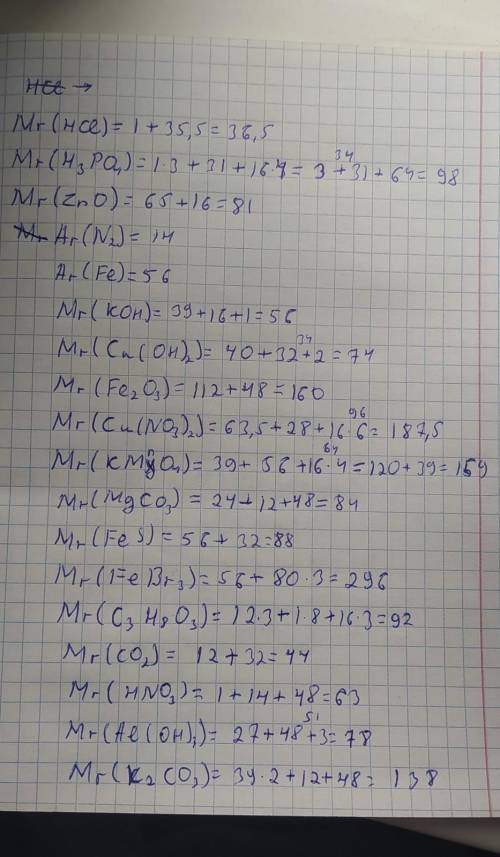 HCl →
Mr(HCl) = 1 + 35,5 = 36,5
Mr(H₃PO₄) = 1·3 + 31 + 16·4 = 3 + 31 + 64 = 98
34
Mr(ZnO) = 65 + 16 = 81
Ar(N₂) = 14
Ar(Fe) = 56
Mr(KOH) = 39 + 16 + 1 = 56
Mr(Ca(OH)₂) = 40 + 32 + 2 = 74
34
Mr(Fe₂O₃) = 112 + 48 = 160
Mr(Cu(NO₃)₂) = 63,5 + 28 + 16·6 = 187,5
96
Mr(KMnO₄) = 39 + 56 + 16·4 = 120 + 39 = 159
64
Mr(MgCO₃) = 24 + 12 + 48 = 84
Mr(FeS) = 56 + 32 = 88
Mr(FeBr₃) = 56 + 80·3 = 296
Mr(C₃H₈O₃) = 12·3 + 1·8 + 16·3 = 92
Mr(CO₂) = 12 + 32 = 44
Mr(HNO₃) = 1 + 14 + 48 = 63
Mr(Al(OH)₃) = 27 + 48 + 3 = 78
51
Mr(K₂CO₃) = 39·2 + 12 + 48 = 138